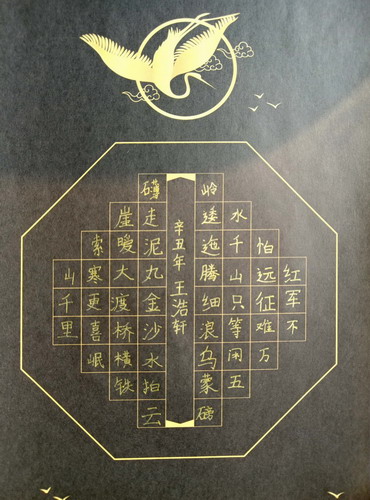 红军不
怕远征难万
水千山只等闲五
岭逶迤腾细浪乌蒙磅
辛丑年 王浩轩
礴走泥丸金沙水拍云
崖暖大渡桥横铁
索寒更喜岷
山千里